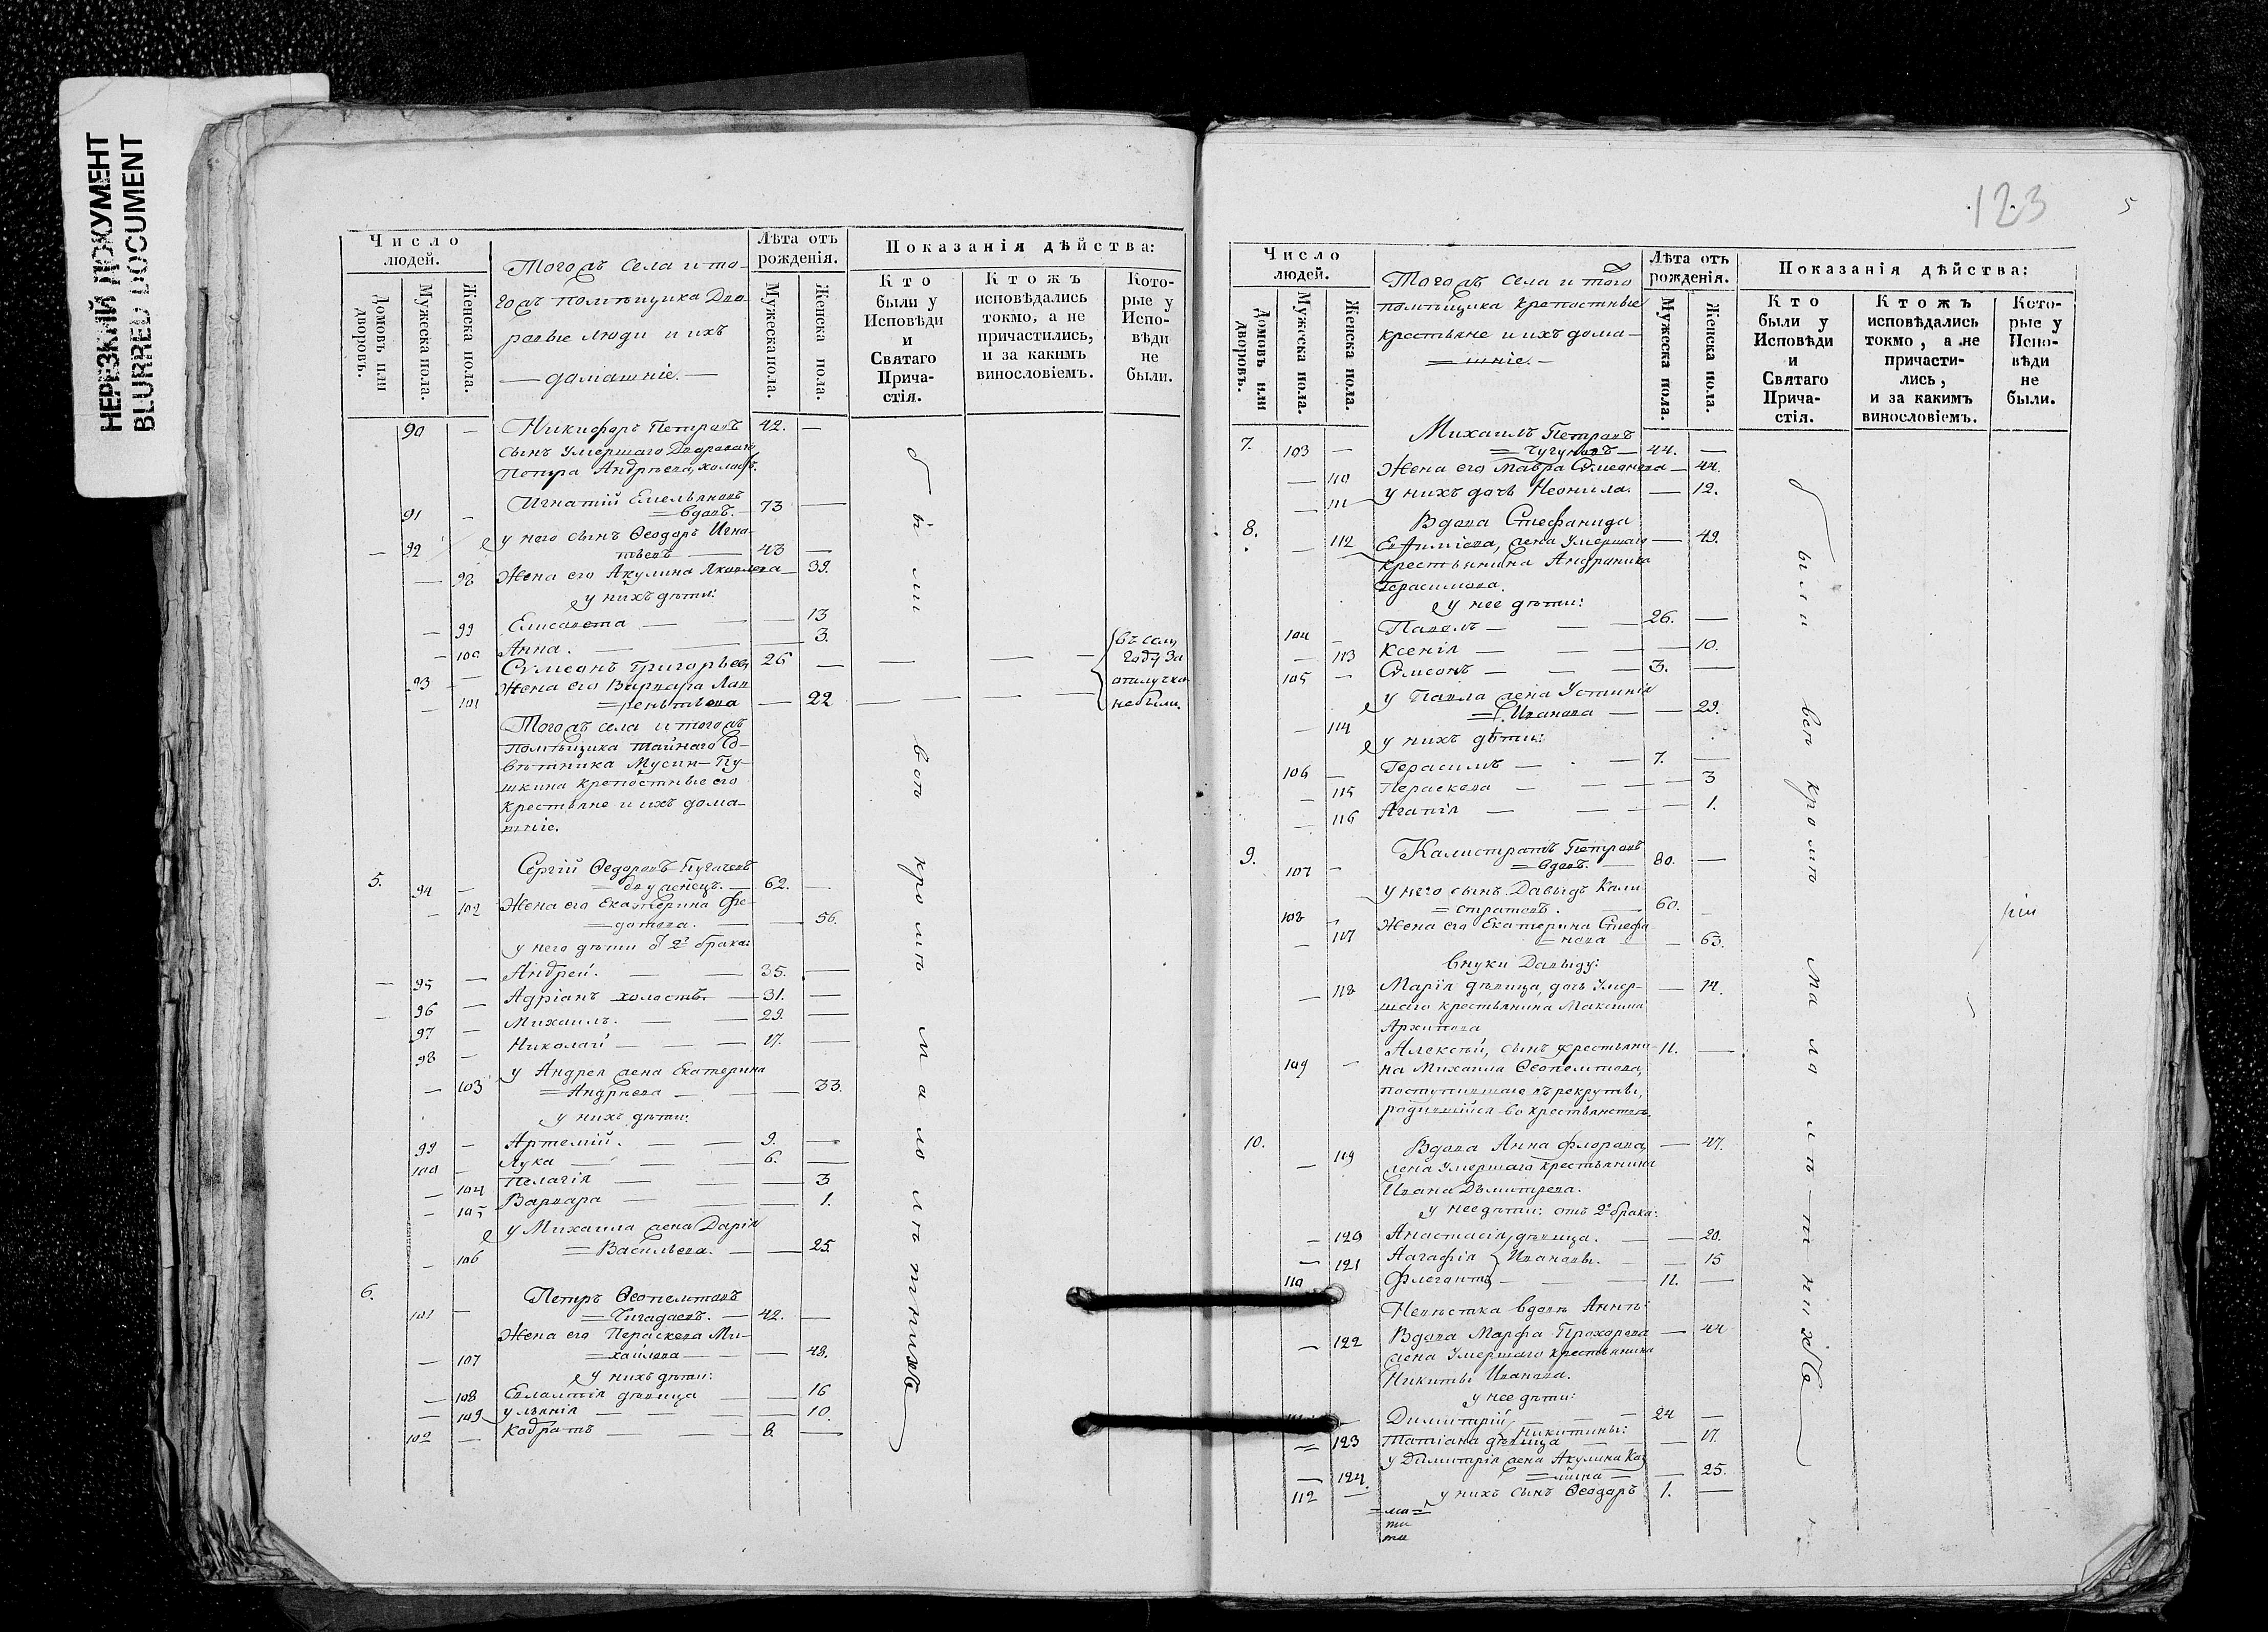 НЕРЕЗКИЙ ДОКУМЕНТ
BLURRED DOCUMENT
Число людей.
Домовъ или дворовъ.
Мужеска пола.
Женска пола.
Тогожъ села и то-
гожъ помѣщика Дво-
ровые люди и ихъ
— домашніе. —
Лѣта отъ рожденія.
Мужеска пола.
Женска пола.
Показанія дѣйства:
Кто были у Исповѣди и Святаго Прича-стія.
Ктожъ исповѣдались токмо, а не причастились, и за какимъ винословіемъ.
Кото-рые у Испо-вѣди не были.
90 — Никифоръ Петровъ 42. —
сынъ умершаго Двороваго
Петра Андрѣева, холостъ.
Игнатій Емельяновъ
91 — = вдовъ. — 73 —
у него сынъ Ѳеодоръ Игна-
— 92 тьевъ — 43 —
— 98 Жена его Акулина Яковлева — 39.
у нихъ дѣти:
— 99 Елисавета — — — 13
— 100 Анна. — — — 3.
93 — Сѵмеонъ Григорьевъ 26 — — — —
Жена его Варвара Лав
— 101 = рентьева — 22 — — —
въ семъ
году за
отлучкою
небыли.
Тогожъ села и тогожъ
помѣщика тайнаго Со-
вѣтника Мусин-Пу-
шкина крепостные его
крестьяне и ихъ дома-
шніе.
Сергій Ѳедоровъ Пугачевъ
5. 94 — = двуженецъ. — 62. —
— 102 Жена его Екатерина Фе-
= дотова. — — 56.
у него дѣти от 2го брака:
— 95 — Андрей. — — 35. —
— 96 — Адріанъ холостъ. — 31. —
97 — Михаилъ. — — 29. —
98 — Николай — — — 17. —
у Андрея жена Екатерина
— 103 = Андрѣева — — — 33.
у нихъ дѣти:
99 — Артемій. — — 9. —
100 — Лука — — — 6. —
— 104 Пелагія — — — 3
— 105 Варвара — — — 1.
у Михаила жена Дарія
— 106 = Васильева. — — 25.
6. Петръ Ѳеопемптовъ
101 — = Чигадаевъ. — 42. —
Жена его Параскева Ми-
— 107 = хайлова — — 48.
у нихъ дѣти:
— 108 Евлампія дѣвица — — 16
— 109 Ульянія — — — 10.
102 — Кодратъ — — — 8. —
были вси кромѣ малолѣтнихъ
123
5
Число людей.
Домовъ или дворовъ.
Мужеска пола.
Женска пола.
Тогожъ села и того
помѣщика крепостные
крестьяне и ихъ дома-
= шніе. —
Лѣта отъ рожденія.
Мужеска пола.
Женска пола.
Показанія дѣйства:
Кто были у Исповѣди и Святаго Прича-стія.
Ктожъ исповѣдались токмо, а не причасти-лись, и за какимъ винословіемъ.
Кото-рые у Испо-вѣди не были.
Михаилъ Петровъ
7. 103 — = Чугуновъ — 44. —
— 110 Жена его Мавра Сѵмеонова — 44.
— 111 у нихъ дочь Неонила. — 12.
Вдова Стефанида
8. — 112 Евѳиміева, жена умершаго — 49.
крестьянина Андроника
Герасимова.
у нее дѣти:
104 — Павелъ — — — 26. —
— 113 Ксенія — — — — 10.
105 — Сѵмеонъ — — — 3. —
у Павла жена Устинія
— 114 = Иванова — — 29.
у нихъ дѣти:
106 — Герасимъ — — — 7. —
— 115 Параскева — — — 3
— 116 Агапія — — — 1.
9. Калистратъ Петровъ
107 — = вдовъ. — 80. —
у него сынъ Давыдъ Кали
108 — = стратовъ. — 60. —
— 117 Жена его Екатерина Стефа
= нова — — 63.
внуки Давыду:
— 118 Марія дѣвица, дочь умер- — 14.
шаго крестьянина Максима
Архипова
109 — Алексѣй, сынъ крестьяни- 11. —
на Михаила Ѳеопемптова,
поступившаго въ рекруты,
родившійся во крестьянствѣ.
10. — 119 Вдова Анна Флорова, — 47.
жена умершаго крестьянина
Ивана Дьмитрева.
у нее дѣти: отъ 2го брака:
— 120 Анастасія дѣвица. — — 20.
— 121 Агафія Ивановы. — — 15
110 Флегонтъ — — 11. —
Невѣстка вдовѣ Аннѣ:
— 122 Вдова Марфа Прохорова — 44
жена умершаго крестьянина
Никиты Иванова.
у нее дѣти:
Димитрій Никитины: — 24 —
123 Татіана дѣвица — — 17.
у Димитрія жена Акулина Коз
— 124. = мина — — 25.
112 — у нихъ сынъ Ѳеодоръ 1. —
были вси кромѣ малолѣтнихъ